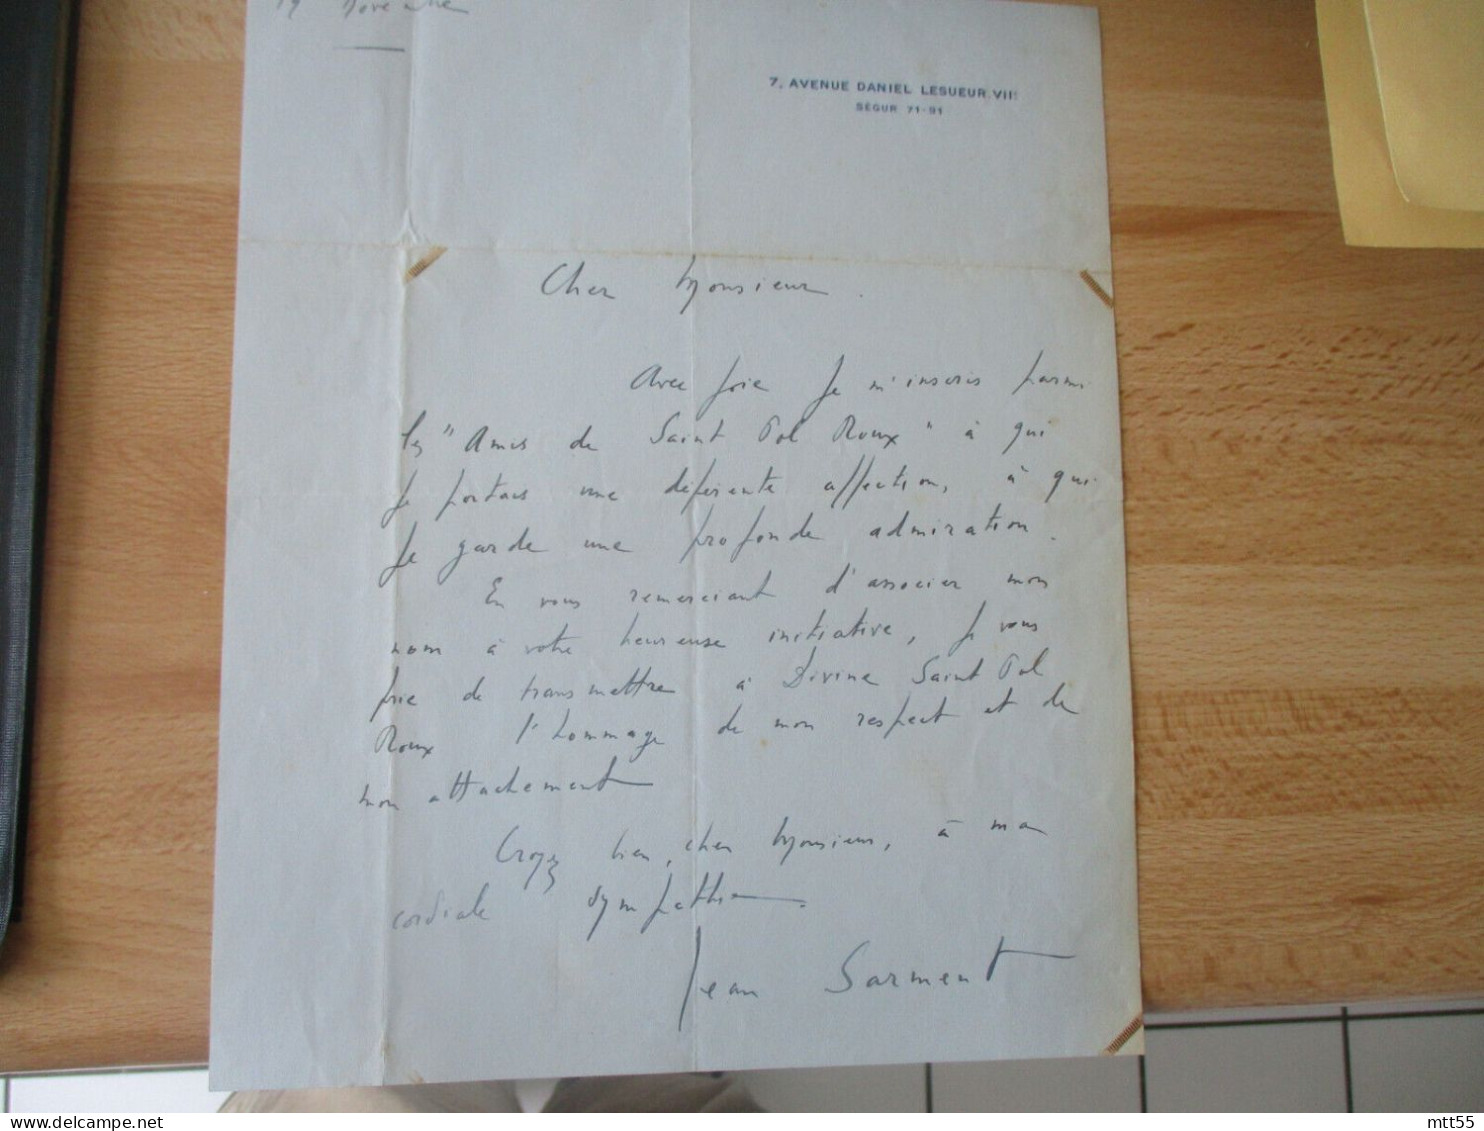 19 Novembre
7, AVENUE DANIEL LESUEUR. VIIe
SÉGUR 71-91
Cher Monsieur.
Avec joie je m'inscris parmi
les "Amis de Saint Pol Roux" à qui
je portais une déférente affection, à qui
je garde une profonde admiration.
En vous remerciant d'associer mon
nom à votre heureuse initiative, je vous
prie de transmettre à Divine Saint Pol
Roux l'hommage de mon respect et de
mon attachement
Croyez bien, cher Monsieur, à ma
cordiale sympathie.
Jean Sarment
mtt55